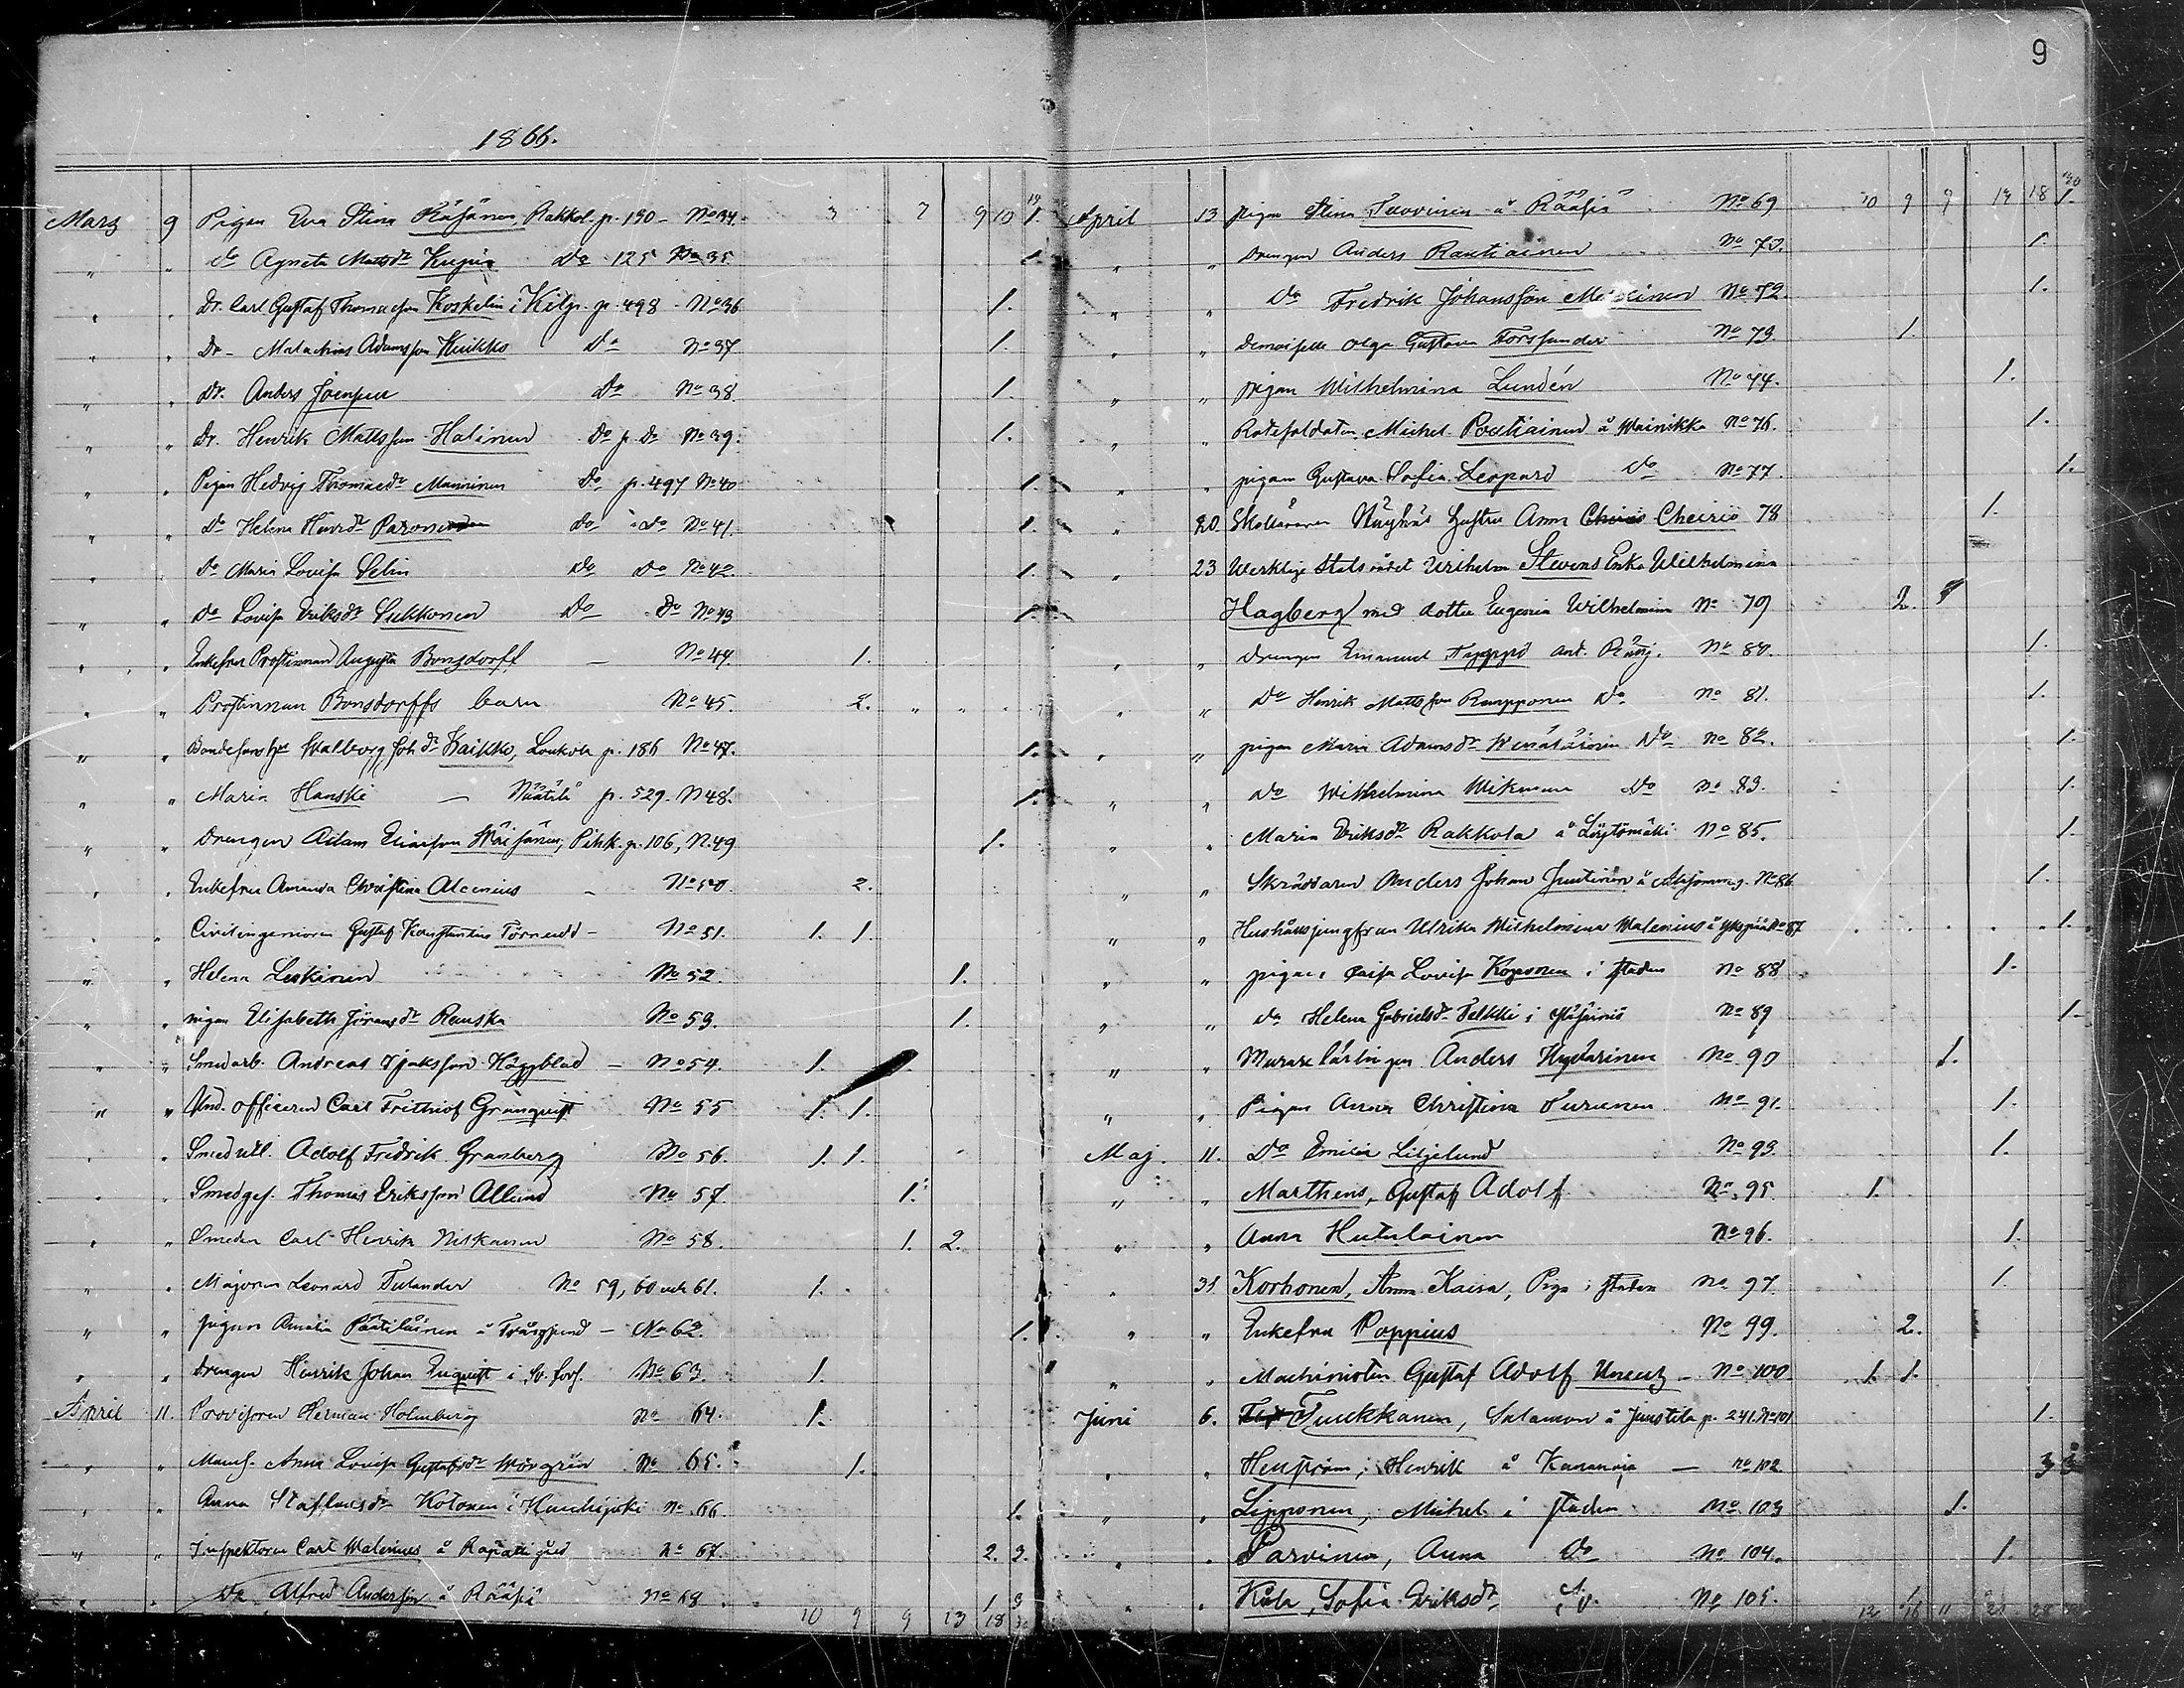 9
1866.
3 7 9 10 19
Mars 9 Pigan Eva Stina Räsänen, Rakkol. p. 190 - No 34. 1.
" " do Agneta Mattsdr Kupia Do 125 No 35. 1.
" " Dr. Carl Gustaf Thomasson Koskelin i Kilp. p. 498 - No 36 1.
" " Dr - Malachias Adamsson Kuikko Do No 37 1.
" " Dr. Anders Joenpelt Do No 38. 1.
" " Dr. Henrik Mattsson Halinen Do p. Do No 39. 1.
" " Pigan Hedvig Thomasdr Manninen Do p. 497 No 40 1.
" " Do Helena Henrdr Paronen Do " Do No 41. 1.
" " Do Maria Lovisa Selin Do Do No 42. 1.
" " Do Lovisa Eriksdr Sikkonen Do Do No 43 1.
" " Enkefru Prostinnan Augusta Bonsdorff — No 44. 1.
" " Prostinnan Bonsdorffs barn No 45. 2.
" " Bondesons hu Walborg Joh.dr Kaikko, Loukola p. 186 No 47. 1.
" " Maria Hanski — Näätälä p. 529. N 48. 1.
" " Drengen Adam Eliasson Wäisänen, Pihk. p. 106, N. 49 1.
" " Enkefru Amanda Christina Alcenius - No 50. 2.
" " Civilingeniören Gustaf Konstantin Törnudd - No 51. 1. 1.
" " Helena Leskinen No 52. 1.
" " pigan Elisabeth Göransdr Ranska No 53. 1.
" " Smedarb. Andreas Isaksson Häggblad — No 54. 1.
" " Und. officeren Carl Frithiof Grönqvist No 55 1. 1.
" " Smedutl. Adolf Fredrik Granberg No 56. 1. 1.
" " Smedges. Thomas Eriksson Allund No 57. 1.
" " Smeden Carl Henrik Niskanen No 58. 1. 2.
" " Majoren Leonard Tulander No 59, 60 och 61. 1.
" " pigan Amalia Päätiläinen å Trångsund — No 62. 1.
" " drengen Henrik Johan Enqvist i Sv. förs. No 63. 1.
April 11. Provisoren Herman Holmberg No 64. 1.
" " Mams. Anna Lovisa Gustafsdr No 65. 1.
" " Anna Staffansdr Kotonen i Huuhijoki No 66. 1.
" " Inspektoren Carl Walenius å Rapatti gård No 67. 2. 3.
" " Do Alfred Andersin å Rääsiä No 68 1 3
10 9 9 13 18
10 9 9 14 18 30
April 13 pigan Stina Tuovinen å Rääsiä No 69 1.
" " Drengen Anders Rautiainen No 70. 1.
" " Do Fredrik Johansson No 72. 1.
" " Demoiselle Olga Gustava Forssander No 73. 1.
" " pigan Wilhelmina Lundén No 74. 1.
" " Rotesoldaten Michel Poutiainen å Wainikka No 76. 1.
" " pigan Gustava Sofia Leopard Do No 77. 1.
" 20. Skolläraren hustru Anna Cheirio 78 1.
" 23 Werklige Statsrådet Wilhelm Stevens Enka Wilhelmina
Hagberg med dotter Eugenia Wilhelmina No 79 2.
" " drengen Emanuel No 80. 1.
" " Do Henrik Mattsson Rumpponen Do No 81. 1.
" " pigan Maria Adamsdr Do No 82. 1.
" " Do Wilhelmina Wikman Do No 83. 1.
" " Maria Eriksdr Rakkola å Löytömäki No 85. 1.
" " Skräddaren Anders Johan Juutinen å No 86 1.
" " Hushållsjungfrun Ulrika Wilhelmina Walenius å No 87 1.
" " pigan Caisa Lovisa Koponen i staden No 88 1.
" " Do Helena Gabrielsdr Telkki i No 89 1.
" " Murare lärlingen Anders Hyvärinen No 90 1.
" " Pigan Anna Christina Turunen No 91. 1.
Maj 11. Do Emilia Liljelund No 93. 1.
" " Marthens, Gustaff Adolf No 95. 1.
" " Anna Hutulainen No 96. 1.
" 31 Korhonen, Anna Kaisa, Piga i staden No 97. 1.
" " Enkefru Poppius No 99. 2.
" " Machinisten Gustaf Adolf No 100 1. 1.
Juni 6. Tuukkanen, Salamon å Juustila p. 241. No 101 1.
" " Henström, Henrik å Kananoja — No 102. 3 3
" " Lipponen, Michel i staden No 103 1.
" " Parvinen, Anna Do No 104. 1.
" " Kåla, Sofia Eriksdr No 105.
12 16 11 21 28